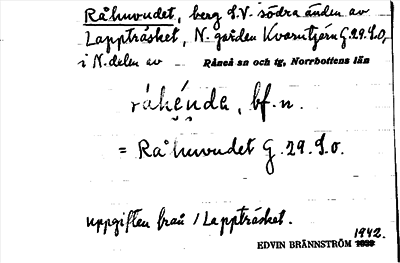 Råhuvudet, berg S.V. södra änden av
Lappträsket, N. gården Kvarntjärn G.29.S.O,
i N.delen av Råneå sn och tg, Norrbottens län
råhénda, bf.n.
= Råhuvudet G.29.S.o.
uppgiften från 1 Lappträsket.
1942.
EDVIN BRÄNNSTRÖM 1938